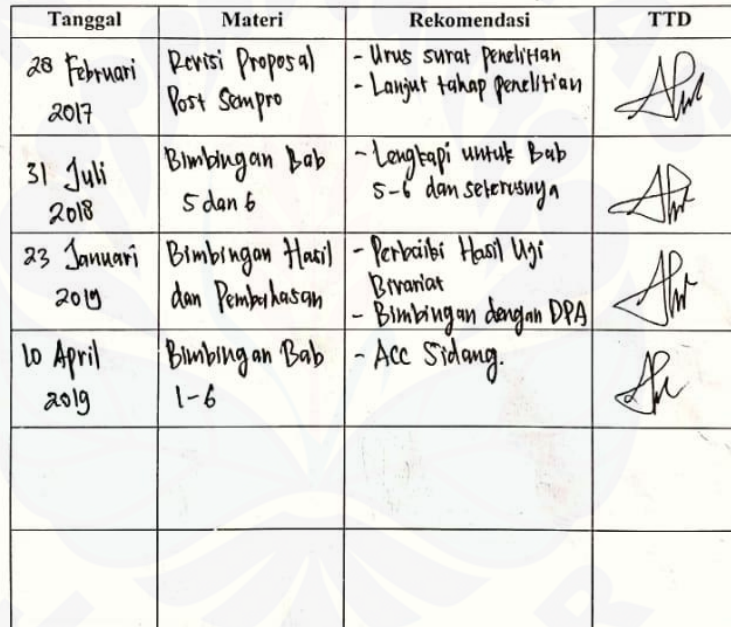 Tanggal Materi Rekomendasi TTD
28 Februari
2017
Revisi Proposal
Post Sempro
- Urus surat Penelitian
- Lanjut tahap penelitian
31 Juli
2018
Bimbingan Bab
5 dan 6
- Lengkapi untuk Bab
5-6 dan seterusnya
23 Januari
2019
Bimbingan Hasil
dan Pembahasan
- Perbaiki Hasil Uji
Bivariat
- Bimbingan dengan DPA
10 April
2019
Bimbingan Bab
1-6
- Acc Sidang.